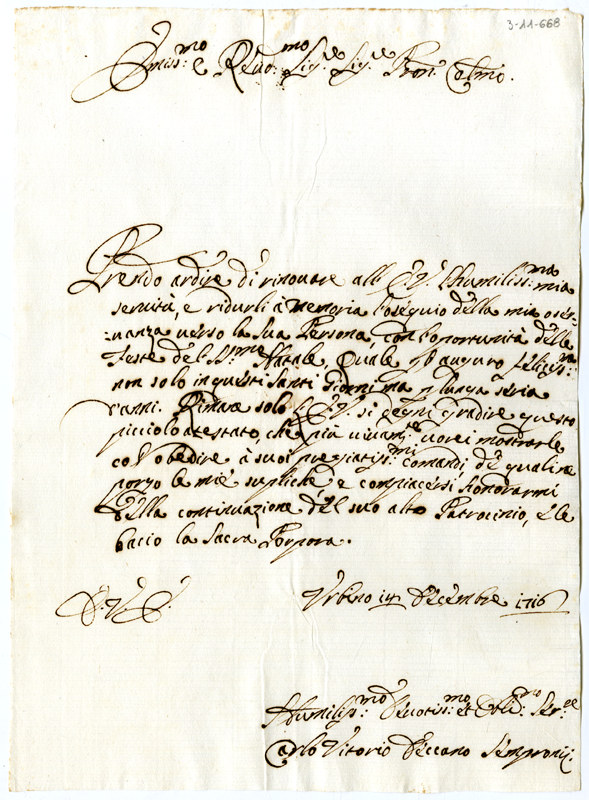 3-11-668
Emiss:mo e Revd:mo Sig:re Sig:re Pron Colmo.
Prendo ardire di rinouare all' E.V. l'humiliss:ma mia
seruitù, e ridurli à memoria l'osequio della mia oser:
:uanza uerso la sua Persona, con l'oportunità delle
Feste del S.mo Natale, Quale gl'auguro felicis:mo
non solo in questi Santi Giorni ma p lunga serie
d'anni. Rimane solo E.V. si degni gradire questo
picciolo atestato, che più uiuam:te uorei mostrarle
col obedire à suoi pregiatis:mi comandi, de quali ne
porgo le mie supliche e compiacersi d'onorarmi
della continuazione del suo alto Patrocinio, e le
bacio la Sacra Porpora.
D.V.E.
Vrbino 14 Decembre 1716
Humiliss:mo Deuotiss:mo et Obl:mo Ser:re
Carlo Vitorio Decano Semproni